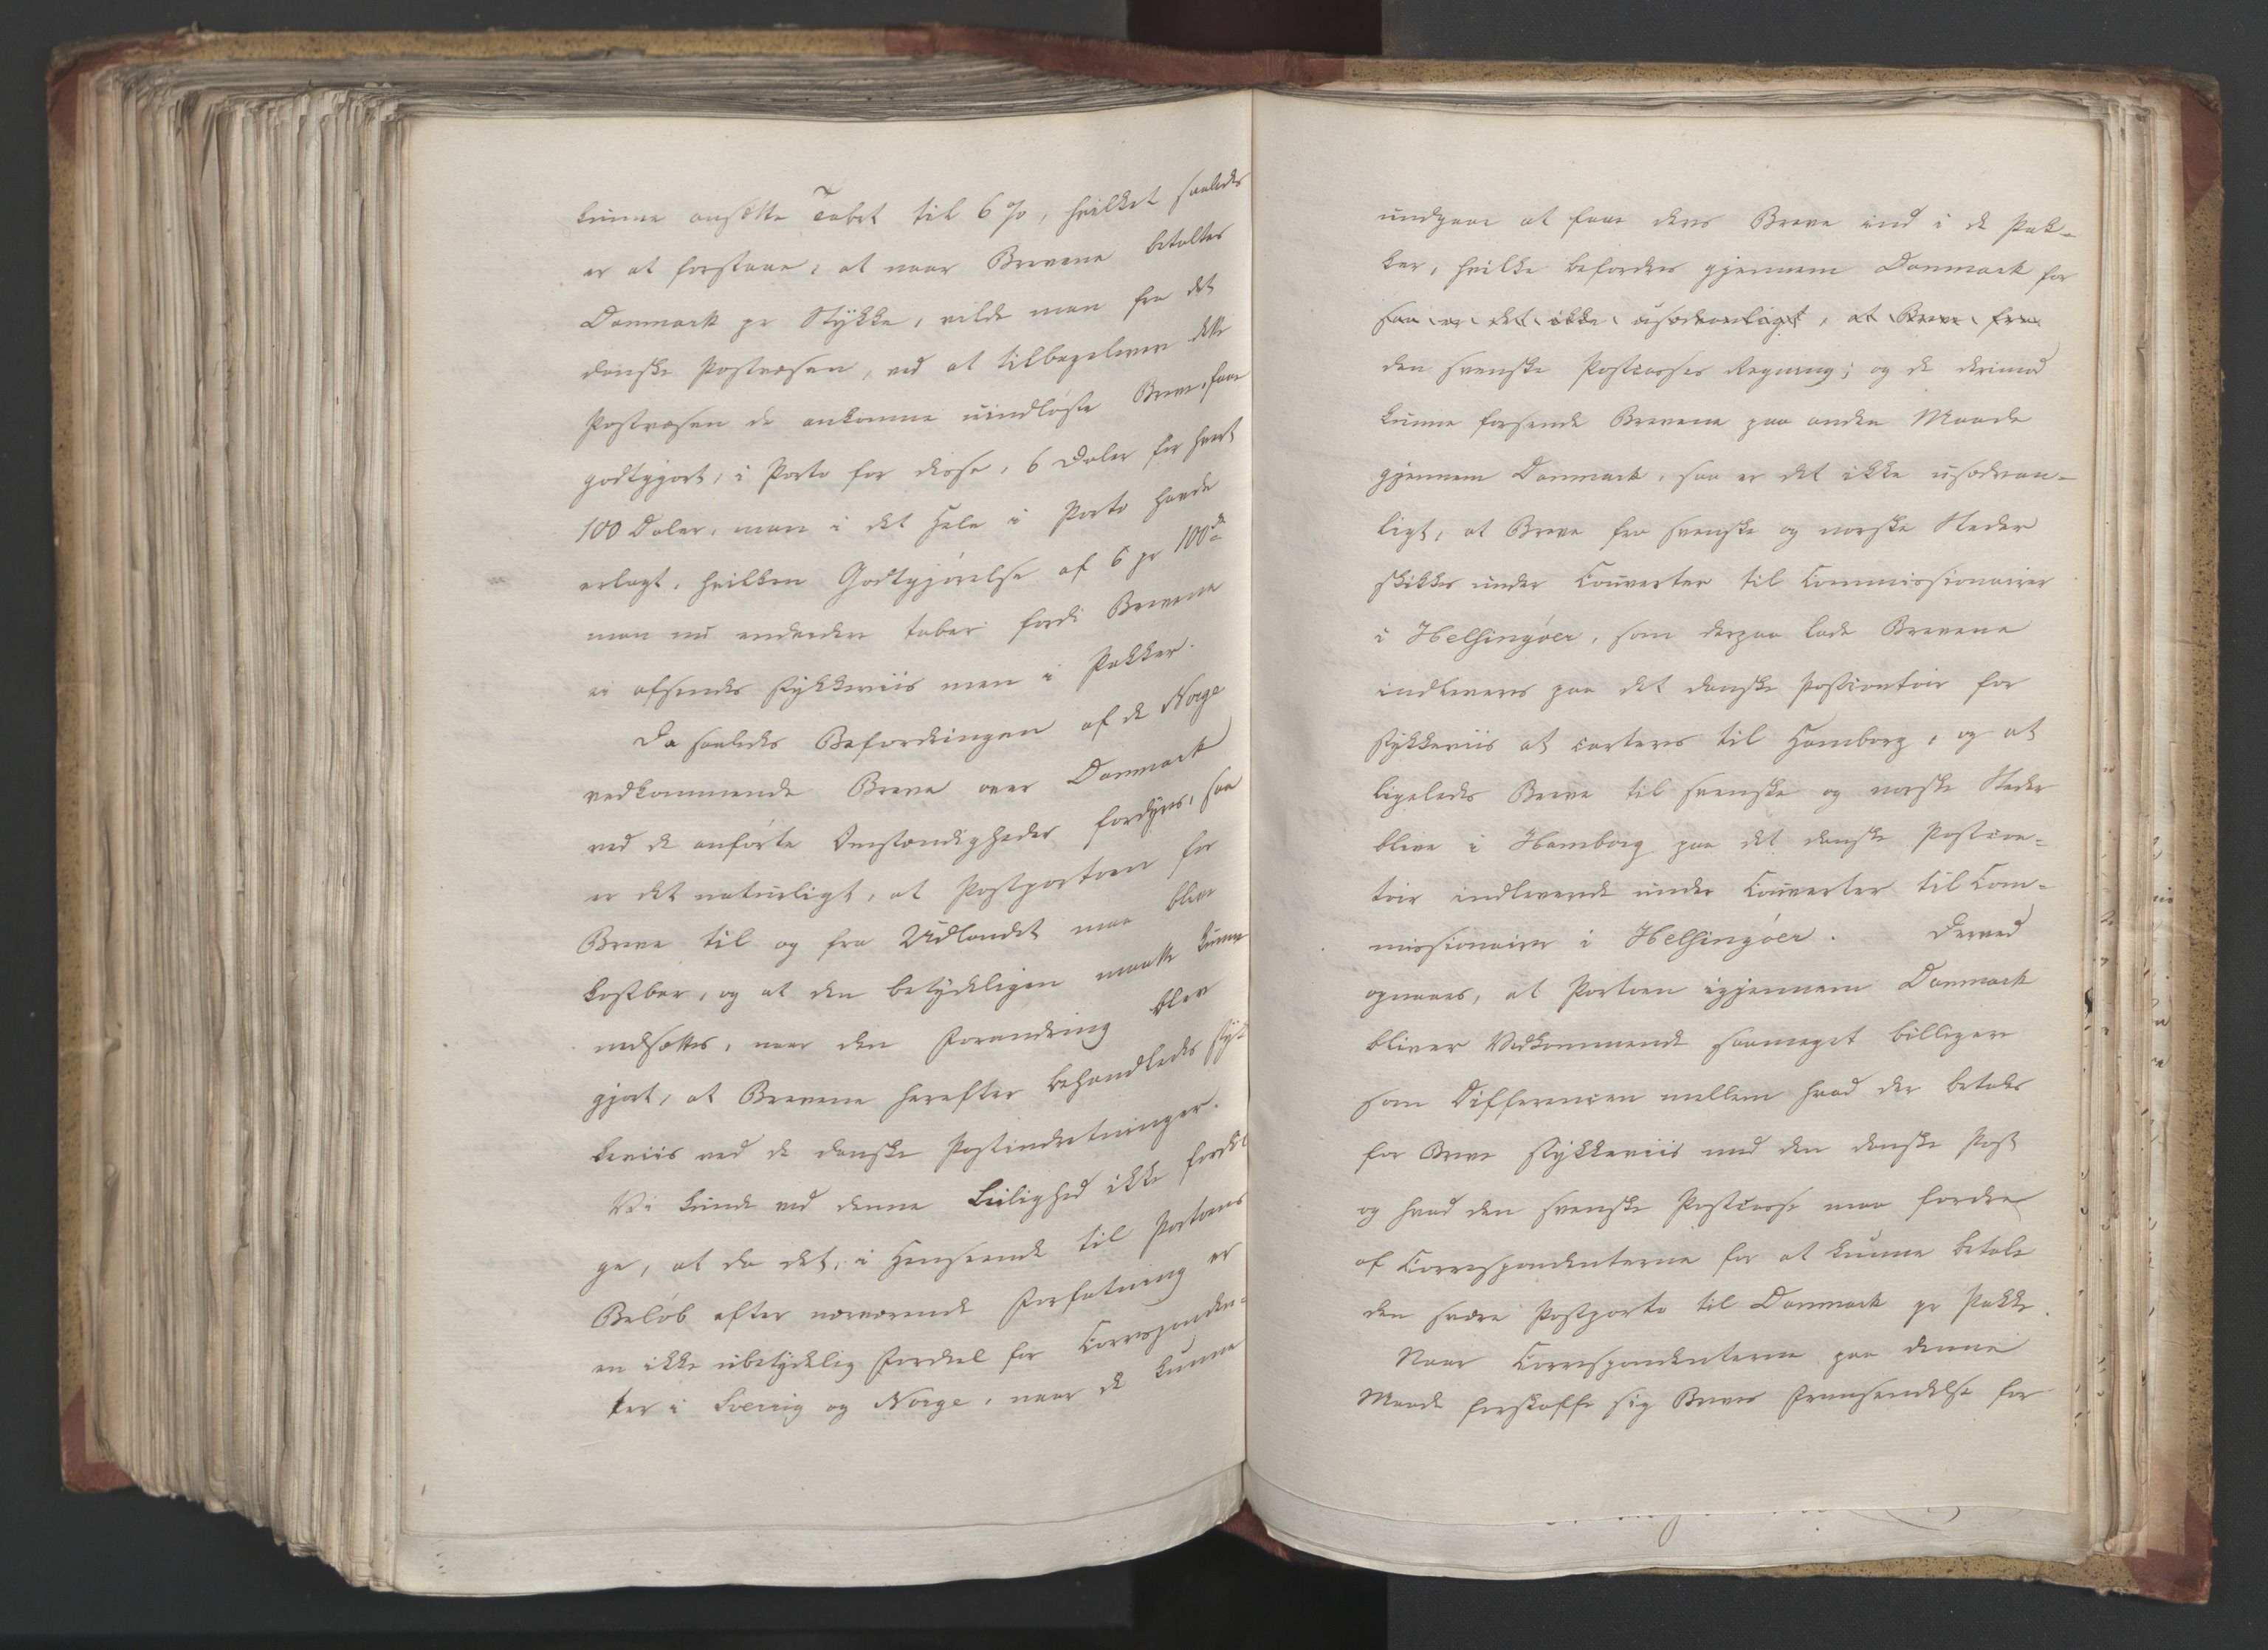 kunne ansætte Tabet til 6 %, hvilket saaledes
er at forstaae, at naar Brevene betaltes
Danmark pr Stykke, vilde man fra det
danske Postvæsen, ved at tilbagelevere dette
Postvæsen de ankomne uindløste Breve, faae
godtgjort, i Porto for disse, 6 Daler for hvert
100 Daler, man i det Hele i Porto havde
erlagt, hvilken Godtgjørelse af 6 pr 100de
man nu endvidere taber fordi Brevene
ei afsendes stykkeviis men i Pakker.
Da saaledes Befordringen af de Norge
vedkommende Breve over Danmark
ved de anførte Omstændigheder fordyres, saa
er det naturligt, at Postportoen for
Breve til og fra Udlandet maa blive
kostbar, og at den betydeligen maatte kunne
nedsættes, naar den Forandring blev
gjort, at Brevene herefter behandledes styk
keviis ved de danske Postindretninger.
Vi kunde ved denne Leilighed ikke fordøl
ge, at da det, i Henseende til Portoens
Beløb efter nærværende Forfatning er
en ikke ubetydelig Fordeel for Corresponden-
ter i Sverrig og Norge, naar de kunne
undgaae at faae deres Breve ind i de Pak-
ker, hvilke befordres gjennem Danmark for
saa er det ikke usædvanligt, at Breve fra
den svenske Postcasses Regning; og de derimod
kunne forsende Brevene paa anden Maade
gjennem Danmark, saa er det ikke usædvan-
ligt, at Breve fra svenske og norske Steder
skikkes under Couverter til Commissionairer
i Helsingøer, som derpaa lade Brevene
indleveres paa det danske Postcontoir for
stykkeviis at carteres til Hamborg, og at
ligeledes Breve til svenske og norske Steder
blive i Hamborg paa det danske Postcon-
toir indleverede under Couverter til Com-
missionairer i Helsingøer. Derved
opnaaes, at Portoen igjennem Danmark
bliver Vedkommende saameget billigere
som Differencen mellem hvad der betales
for Breve stykkeviis med den danske Post
og hvad den svenske Postcasse maa fordre
af Correspondenterne for at kunne betale
den svære Postporto til Danmark pr Pakke.
Naar Correspondenterne paa denne
Maade forskaffe sig Breves Fremsendelse for